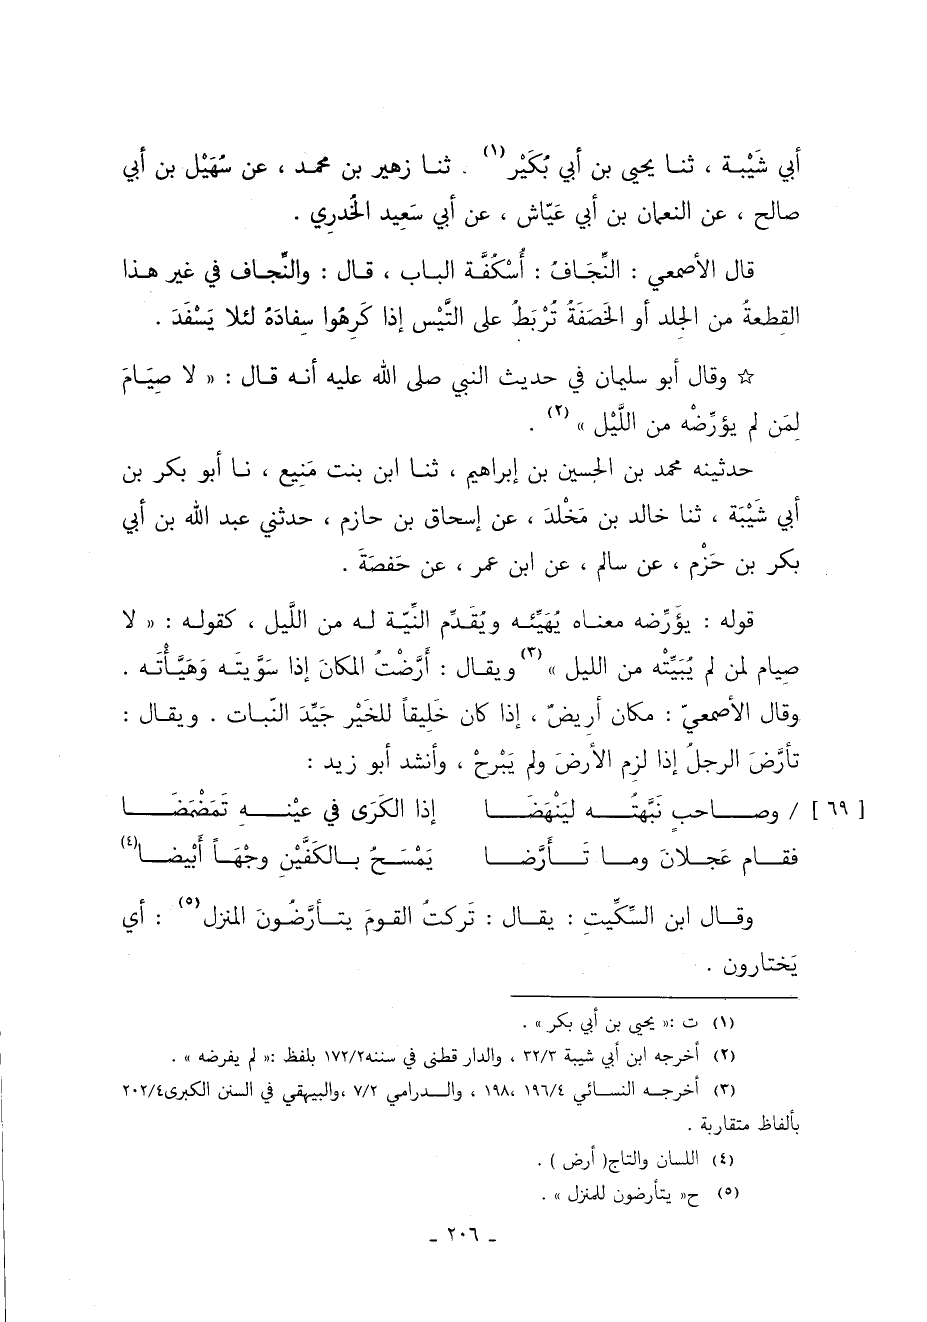 أبي شَيْبة ، ثنا يحيى بن أبي بُكَيْر (١) . ثنا زهير بن محمد ، عن سُهَيْل بن أبي
صالح ، عن النعمان بن أبي عَيّاش ، عن أبي سَعِيد الخُدري .
قال الأصمعي : النِّجَافُ : أُسْكُفَّة الباب ، قال : والنِّجاف في غير هذا
القِطعةُ من الجِلد أو الخَصَفَةُ تُرْبَطُ على التَّيْس إذا كَرِهُوا سِفادَهُ لئلا يَسْفَدَ .
☆ وقال أبو سليمان في حديث النبي صلى الله عليه أنه قال : « لا صِيَامَ
لِمَن لم يؤرِّضْه من اللَّيْل » (٢) .
حدثنيه محمد بن الحسين بن إبراهيم ، ثنا ابن بنت مَنِيع ، نا أبو بكر بن
أبي شَيْبَة ، ثنا خالد بن مَخْلَد ، عن إسحاق بن حازم ، حدثني عبد الله بن أبي
بكر بن حَزْم ، عن سالم ، عن ابن عمر ، عن حَفصَةَ .
قوله : يؤَرِّضه معناه يُهَيِّئه ويُقَدِّم النِّيّة له من اللَّيل ، كقوله : « لا
صيام لمن لم يُبَيِّتْه من الليل » (٣) ويقال : أَرَّضْتُ المكانَ إذا سَوَّيتَه وَهَيَّأْتَه .
وقال الأصمعيّ : مكان أريضٌ ، إذا كان خَلِيقاً للخَيْر جَيِّدَ النّبات . ويقال :
تأرَّضَ الرجلُ إذا لزم الأرضَ ولم يَبْرحْ ، وأنشد أبو زيد :
[ ٦٩ ] / وصاحبٍ نَبَّهتُه لِيَنْهَضَا إذا الكَرَى في عيْنه تَمَضْمَضَا
فقام عَجلانَ وما تَأَرَّضا يَمْسَحُ بالكَفَّيْن وجْهَاً أَبْيضا (٤)
وقال ابن السِّكِّيتِ : يقال : تَركتُ القومَ يتأرَّضُونَ المنزل (٥) : أي
يَختارون .
(١) ت :« يحيى بن أبي بكر » .
(٢) أخرجه ابن أبي شيبة ٣٢/٣ ، والدار قطني في سننه ١٧٢/٢ بلفظ :« لم يفرضه » .
(٣) أخرجه النسائي ١٩٦/٤ ،١٩٨ ، والدرامي ٧/٢ ،والبيهقي في السنن الكبرى ٢٠٢/٤
بألفاظ متقاربة .
(٤) اللسان والتاج( أرض ) .
(٥) ح« يتأرضون للمنزل » .
ـ ٢٠٦ ـ